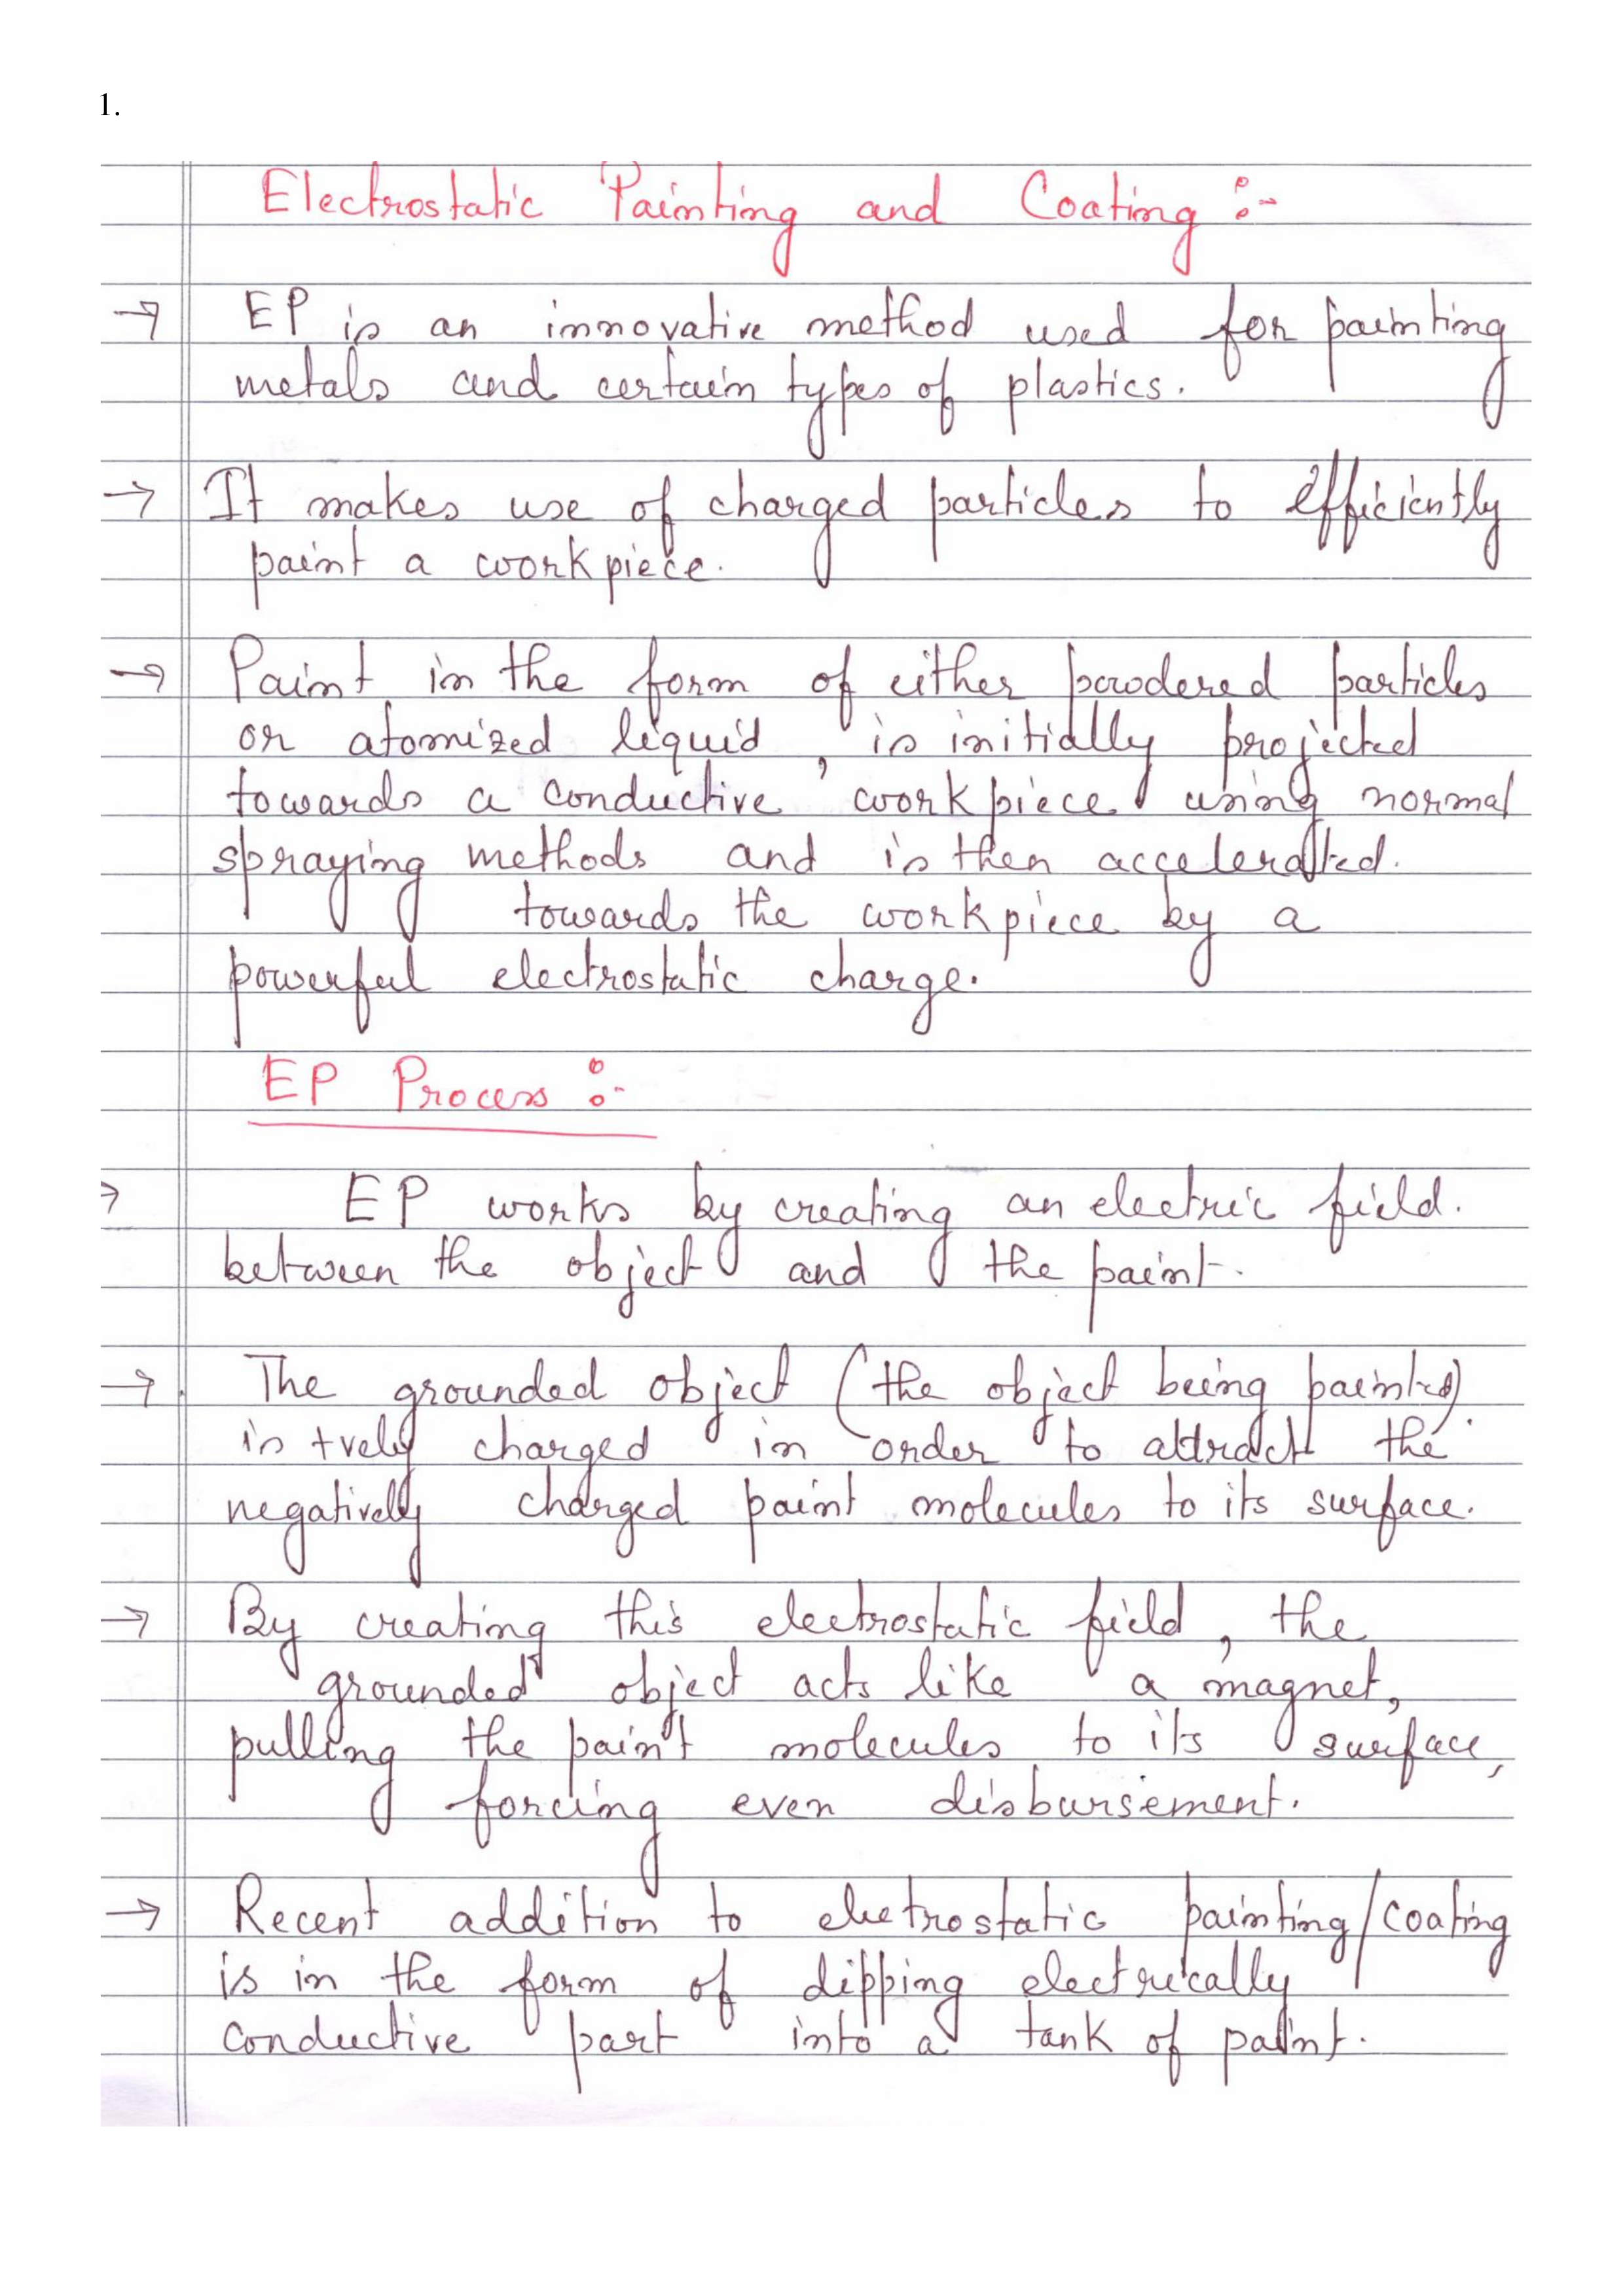 1.
Electrostatic Painting and Coating :-
→ EP is an innovative method used for painting
metals and certain types of plastics.
→ It makes use of charged particles to efficiently
paint a workpiece.
→ Paint in the form of either powdered particles
or atomized liquid, is initially projected
towards a conductive workpiece using normal
spraying methods and is then accelerated.
towards the workpiece by a
powerful electrostatic charge.
EP Process :-
→ EP works by creating an electric field.
between the object and the paint.
→ The grounded object (the object being painted)
is +vely charged in order to attract the
negatively charged paint molecules to its surface.
→ By creating this electrostatic field, the
grounded object acts like a magnet,
pulling the paint molecules to its surface,
forcing even disbursement.
→ Recent addition to electrostatic painting/coating
is in the form of dipping electrically
conductive part into a tank of paint.